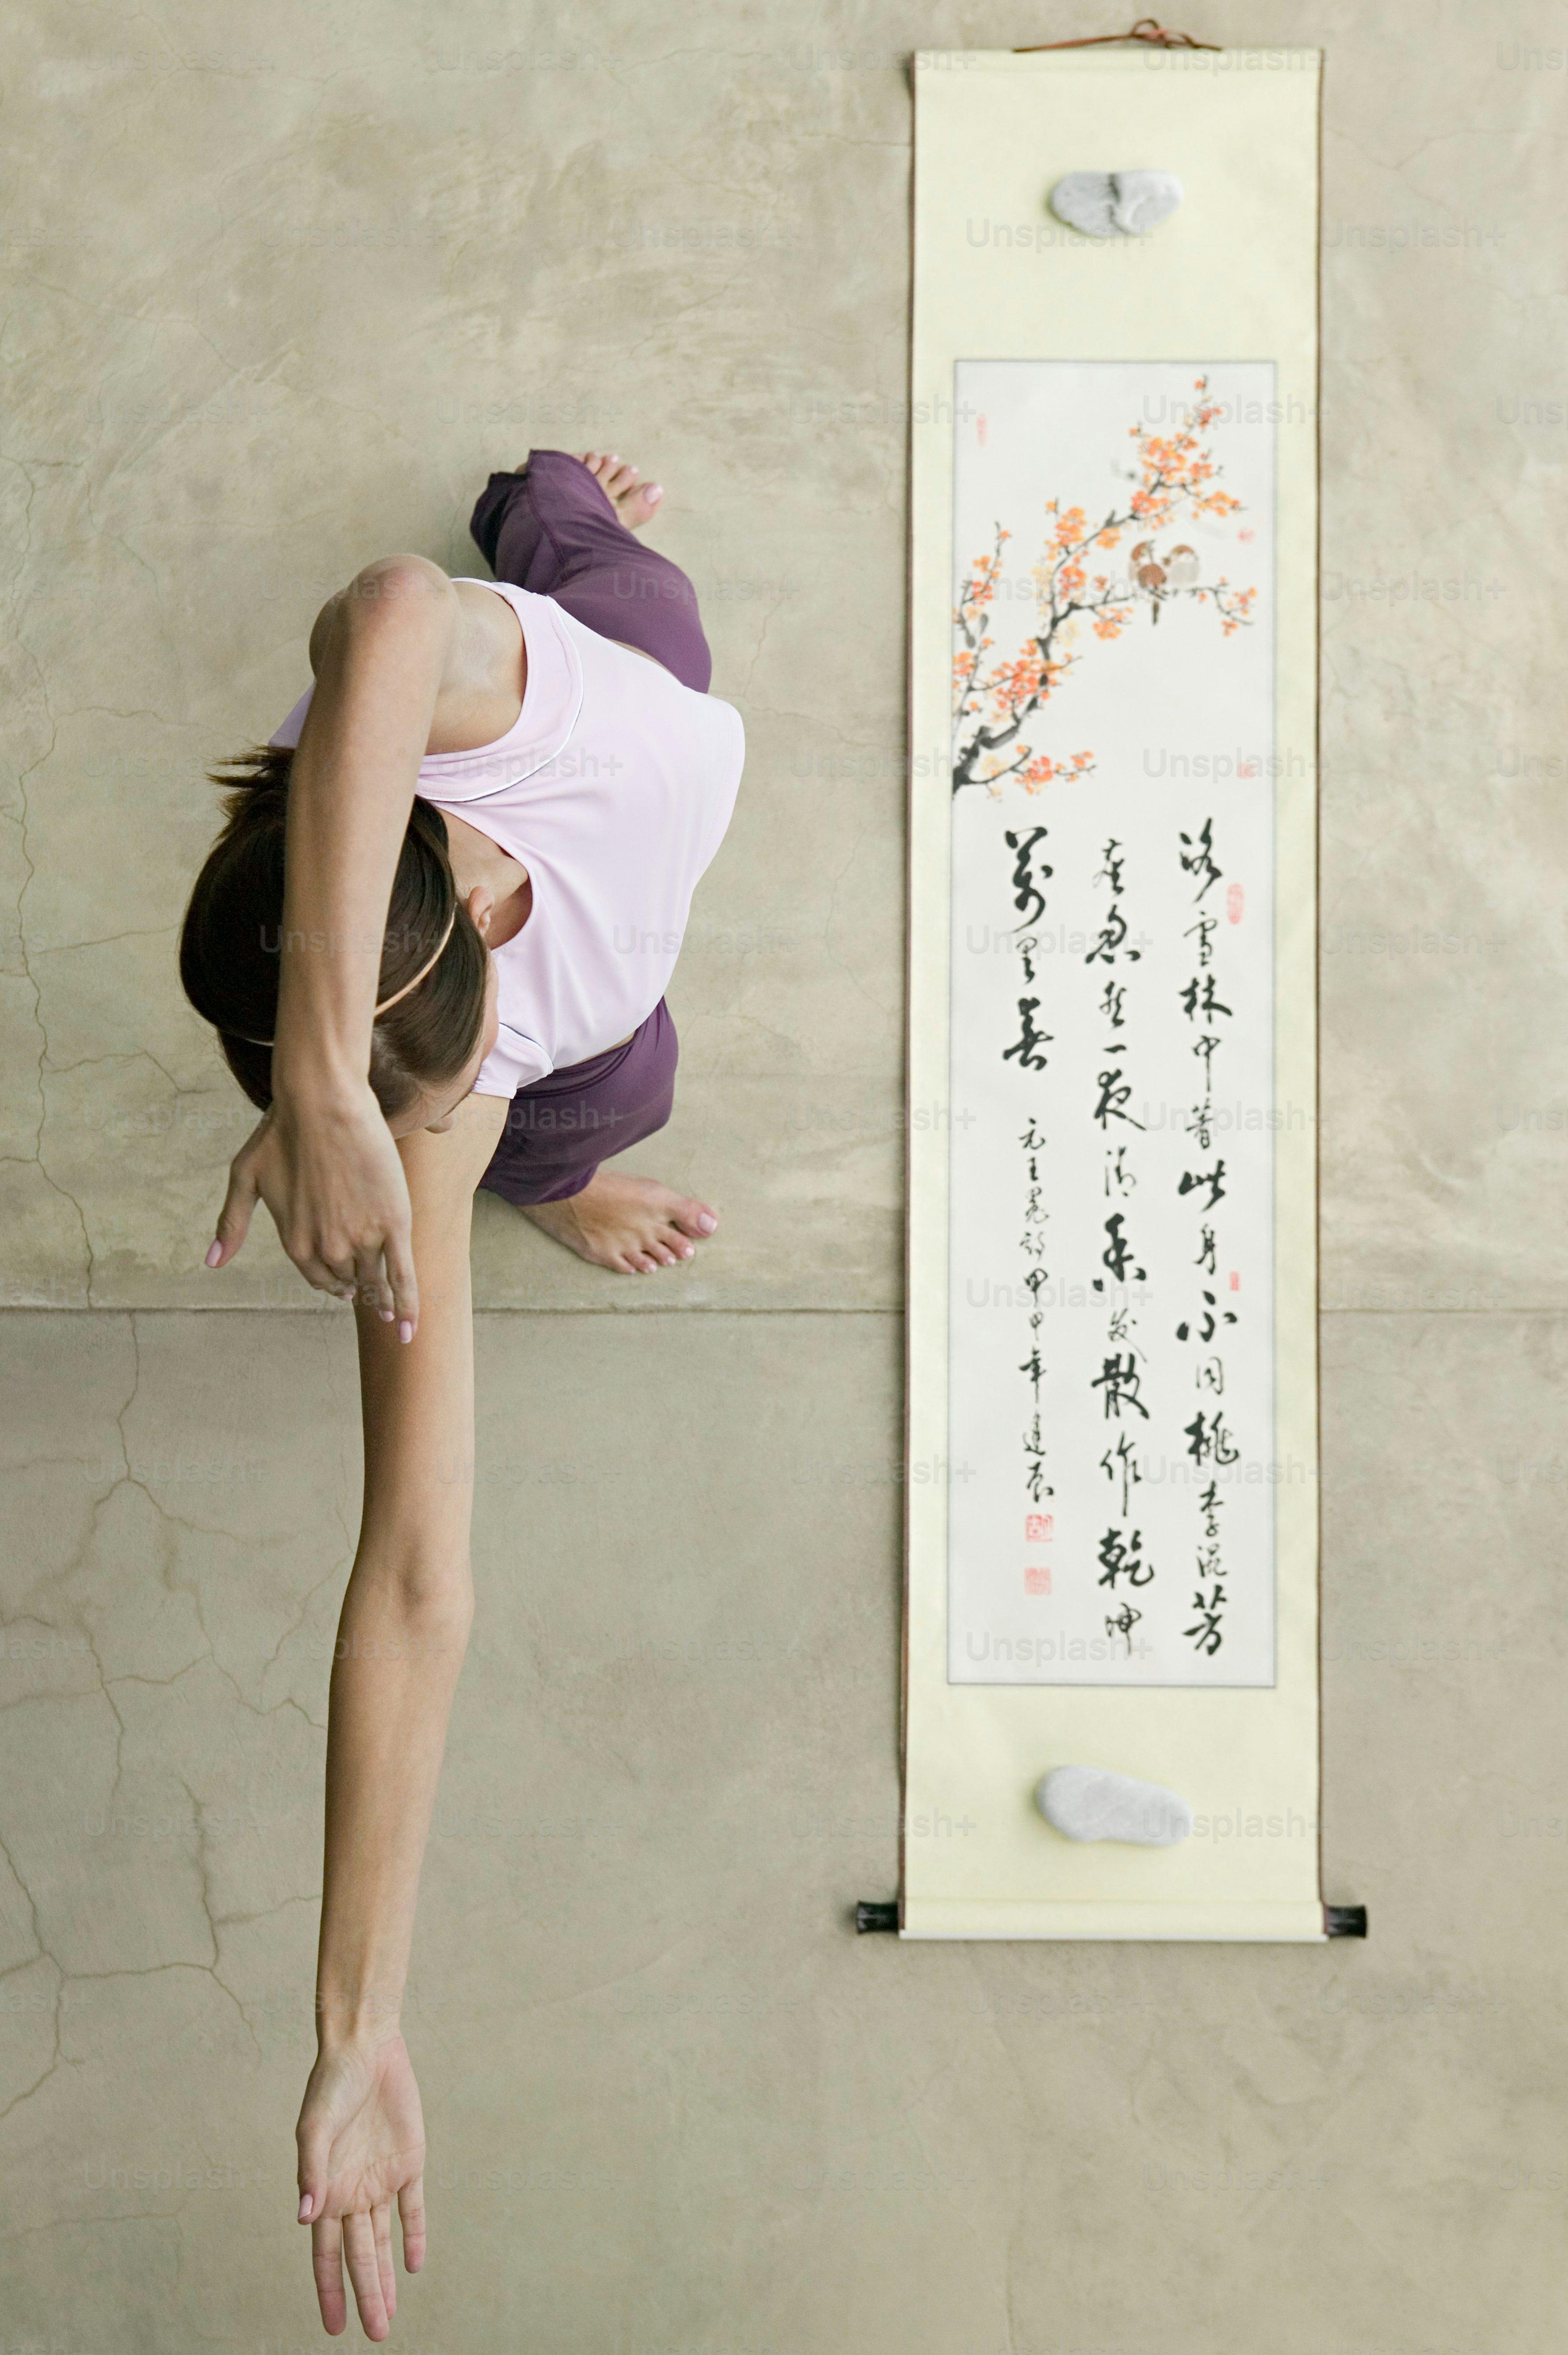 冰雪林中著此身不同桃李混芳
塵忽然一夜清香发散作乾坤
萬里春
元王冕詩甲申年建
Unsplash+